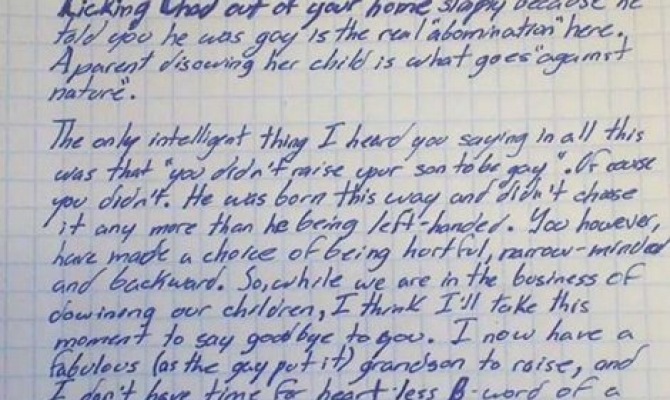 Kicking Chad out of your home simply because he
told you he was gay is the real "abomination" here.
A parent disowing her child is what goes "against
nature".
The only intelligent thing I heard you saying in all this
was that "you didn't raise your son to be gay". Of couse
you didn't. He was born this way and didn't choose
it any more than he being left-handed. You however,
have made a choice of being hortful, narrow-minded
and backward. So, while we are in the business of
dowining our children, I think I'll take this
moment to say goodbye to you. I now have a
fabulous (as the gay put it) grandson to raise, and
I don't have time for heart-less B-word of a